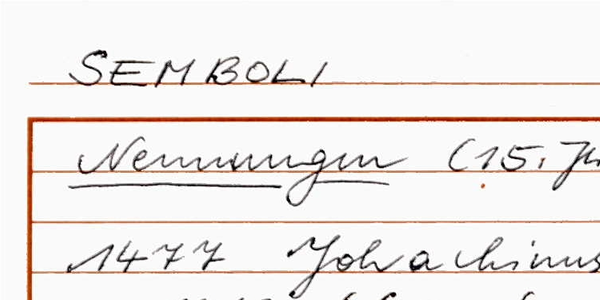 SEMBOLI
Nennungen (15. Jh
1477 Johachinus